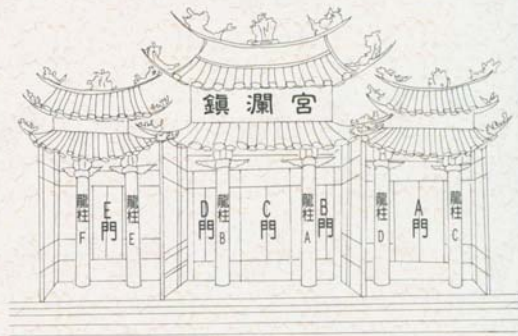 鎮瀾宮
龍柱F
E門
龍柱E
D門
龍柱B
C門
龍柱A
B門
龍柱D
A門
龍柱C